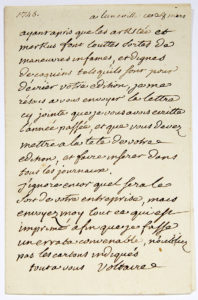 1748. a luneville, ce 25 mars
ayant apris que les artistée et
merkus font touttes sortes de
manœuvres infames, et dignes
de coquins tels qu'ils sont pour
décrier votre edition, je me
résous a vous envoyer la lettre
cy jointe que j'avois ecritte
l'année passée, et que vous devez
mettre a la tete de votre
edition, et faire inserer dans
tous les journaux.
j'ignore encor quel sera le
sort de votre entreprise, mais
envoyez moy tout ce qui est
imprimé a fin que je fasse
un errata convenable, n'oubliez
pas les cartons indiqués
tout a vous Voltaire